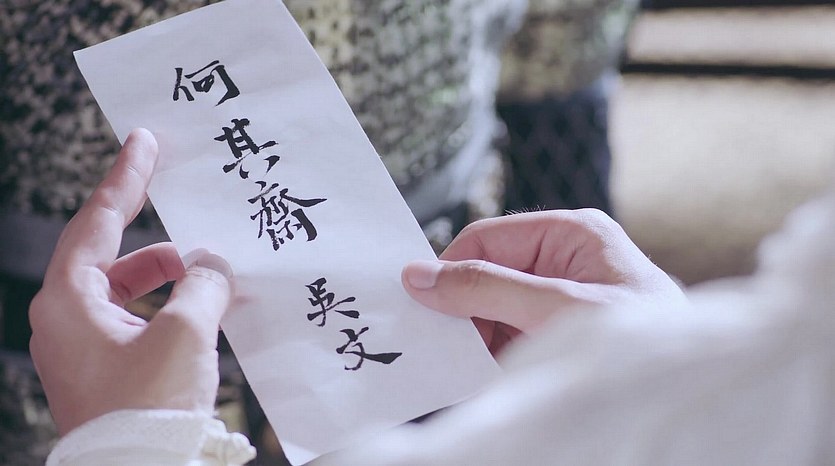 何其齋 吳文